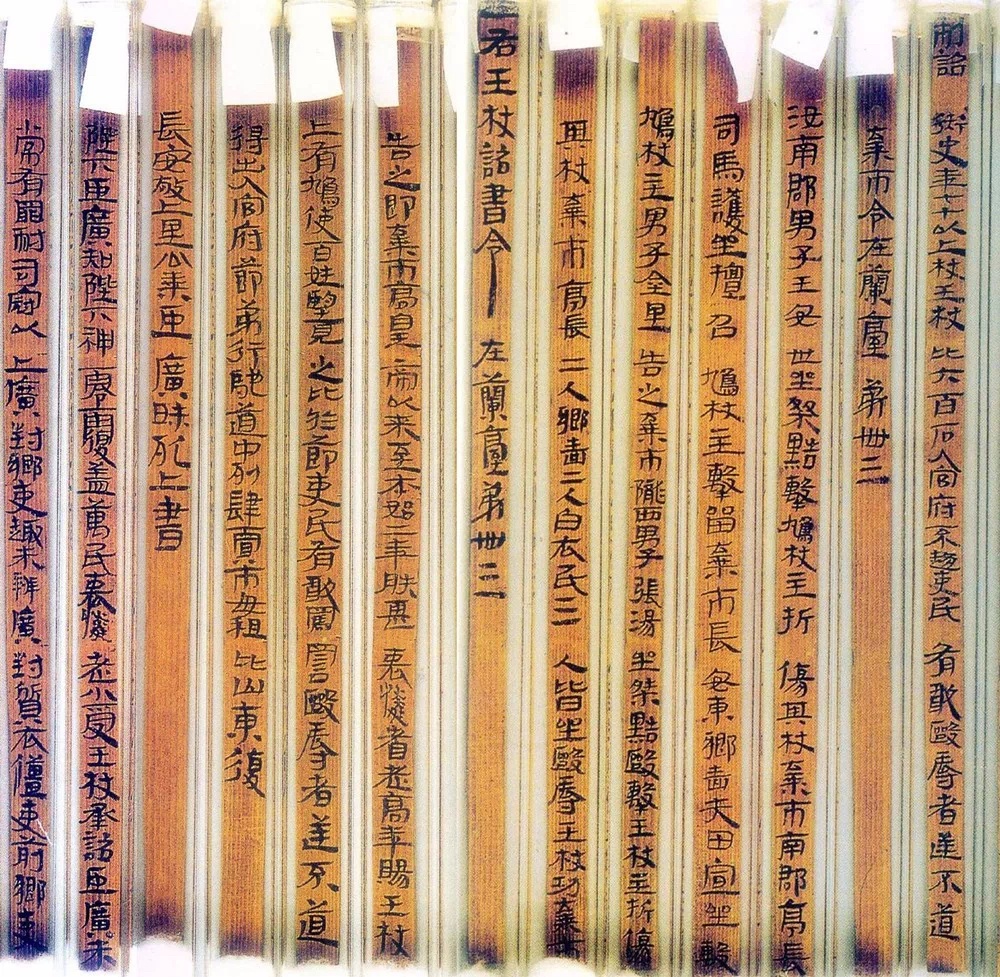 制詔 御史年七十以上杖王杖比六百石入官府不趨吏民有敢毆辱者逆不道
棄市令在蘭臺第卌三
汝南郡男子王安世坐桀黠擊鳩杖主折傷其杖棄市南郡亭長
司馬護坐擅召鳩杖主擊留棄市長安東鄉嗇夫田宣坐擊
鳩杖主男子金里告之棄市隴西男子張湯坐桀黠毆擊王杖主折傷
其杖棄市亭長二人鄉嗇二人白衣民三人皆坐毆辱王杖功棄市
右王杖詔書令 在蘭臺第卌三
告之即棄市高皇帝以來至本始二年朕甚哀憐耆老高年賜王杖
上有鳩使百姓望見之比於節吏民有敢罵詈毆辱者逆不道
得出入官府節第行馳道中列肆賈市毋租比山東復
長安敬上里公乘臣廣昧死上書
陛下臣廣知陛下神零覆蓋萬民哀憐老小受王杖承詔臣廣未
常有罪耐司寇以上廣對鄉吏趣未辨廣對質衣僵吏前鄉吏